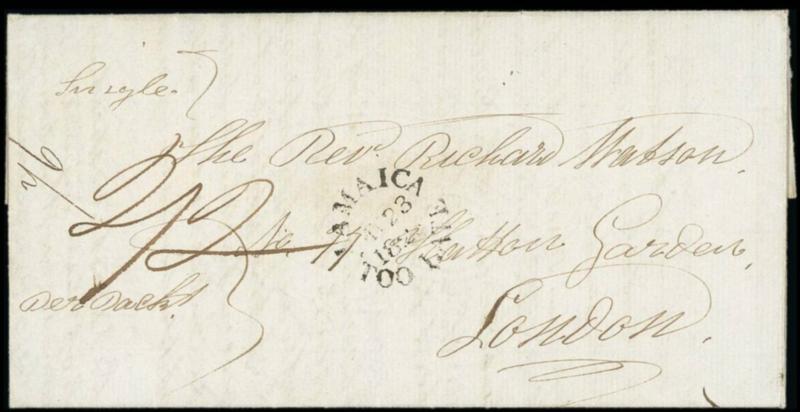 Single.
The Rev. Richard Watson,
2/2
No. 17 Hatton Garden,
London.
Per Packt
JAMAICA
23
182